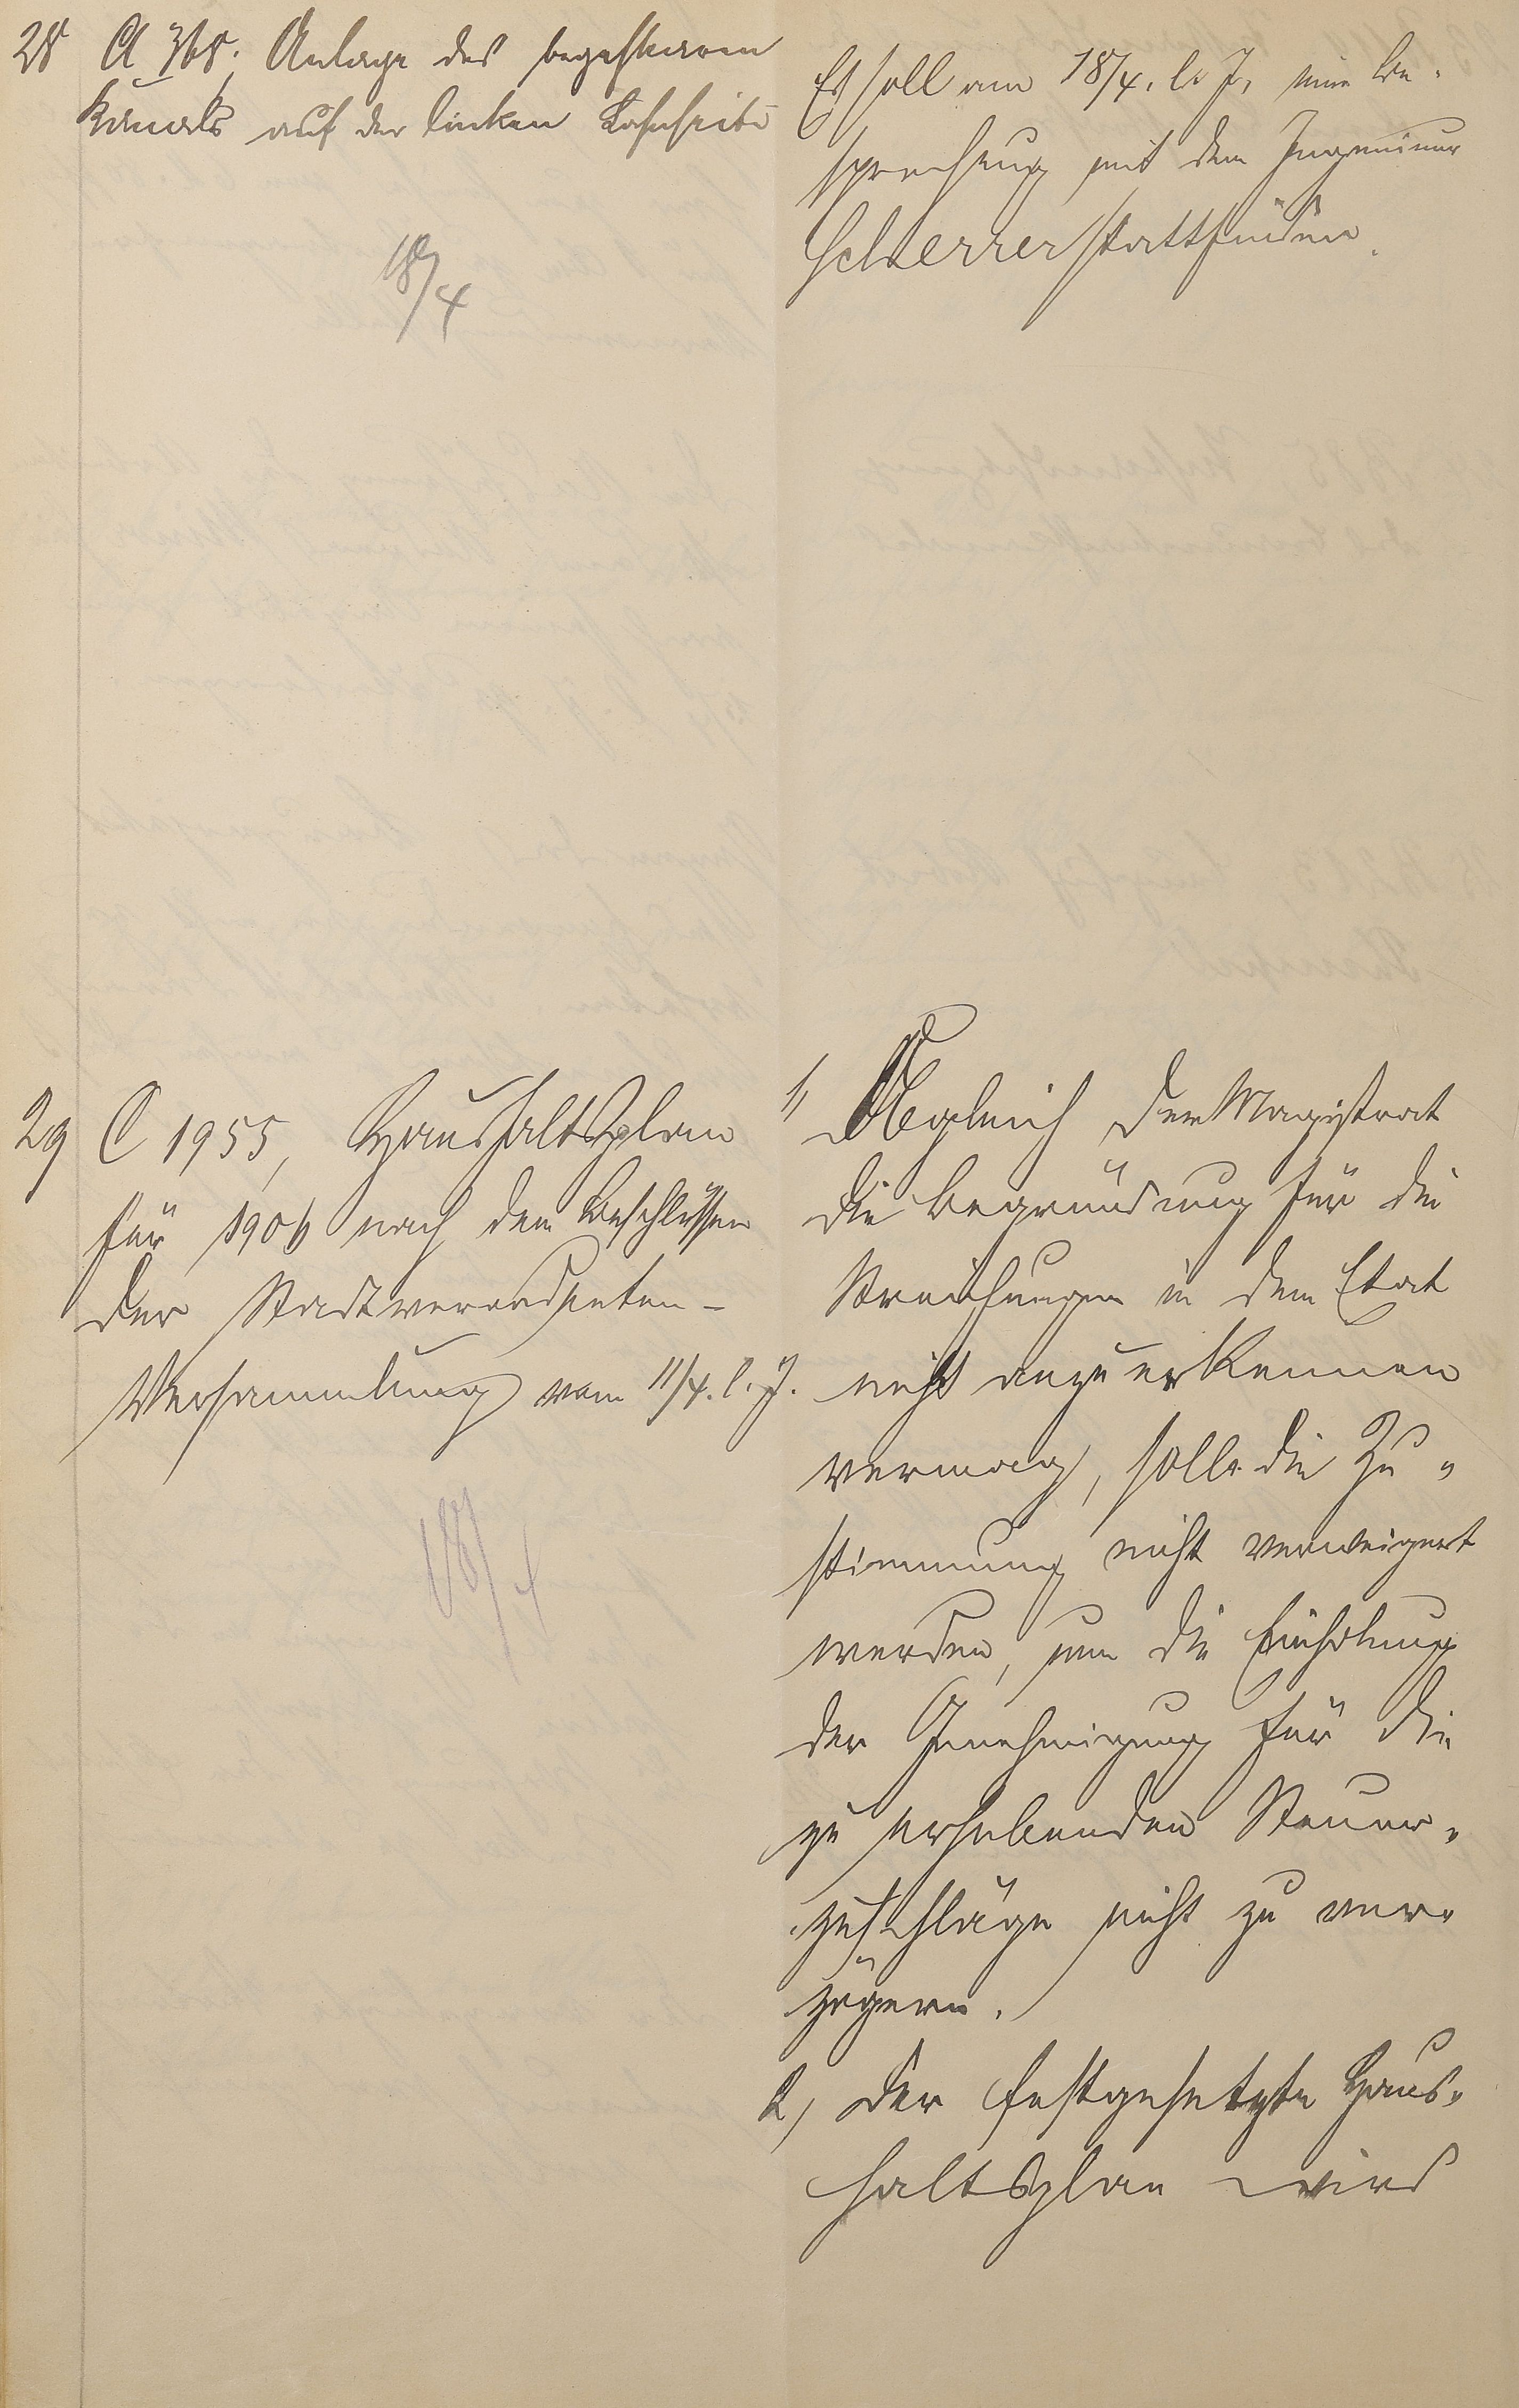 28 A 368. Anlage des begehbaren
Kanals auf der linken Lahnseite
18/4
Es soll am 18/4. l. J. eine Be-
sprechung mit dem Ingenieur
Scherrer stattfinden.
29 C 1955, Haushaltsplan
für 1906 nach den Beschlüssen
der Stadtverordneten-
Versammlung vom 11/4. l. J.
18/4
1, Obgleich der Magistrat
die Begründung für die
Streichungen in dem Etat
nicht anzuerkennen
vermag, solle die Zu-
stimmung nicht verweigert
werden, um die Einholung
der Genehmigung für die
zu erhebenden Steuer-
zuschläge nicht zu ver-
zögern.
2, Der festgesetzte Haus-
haltsplan wird